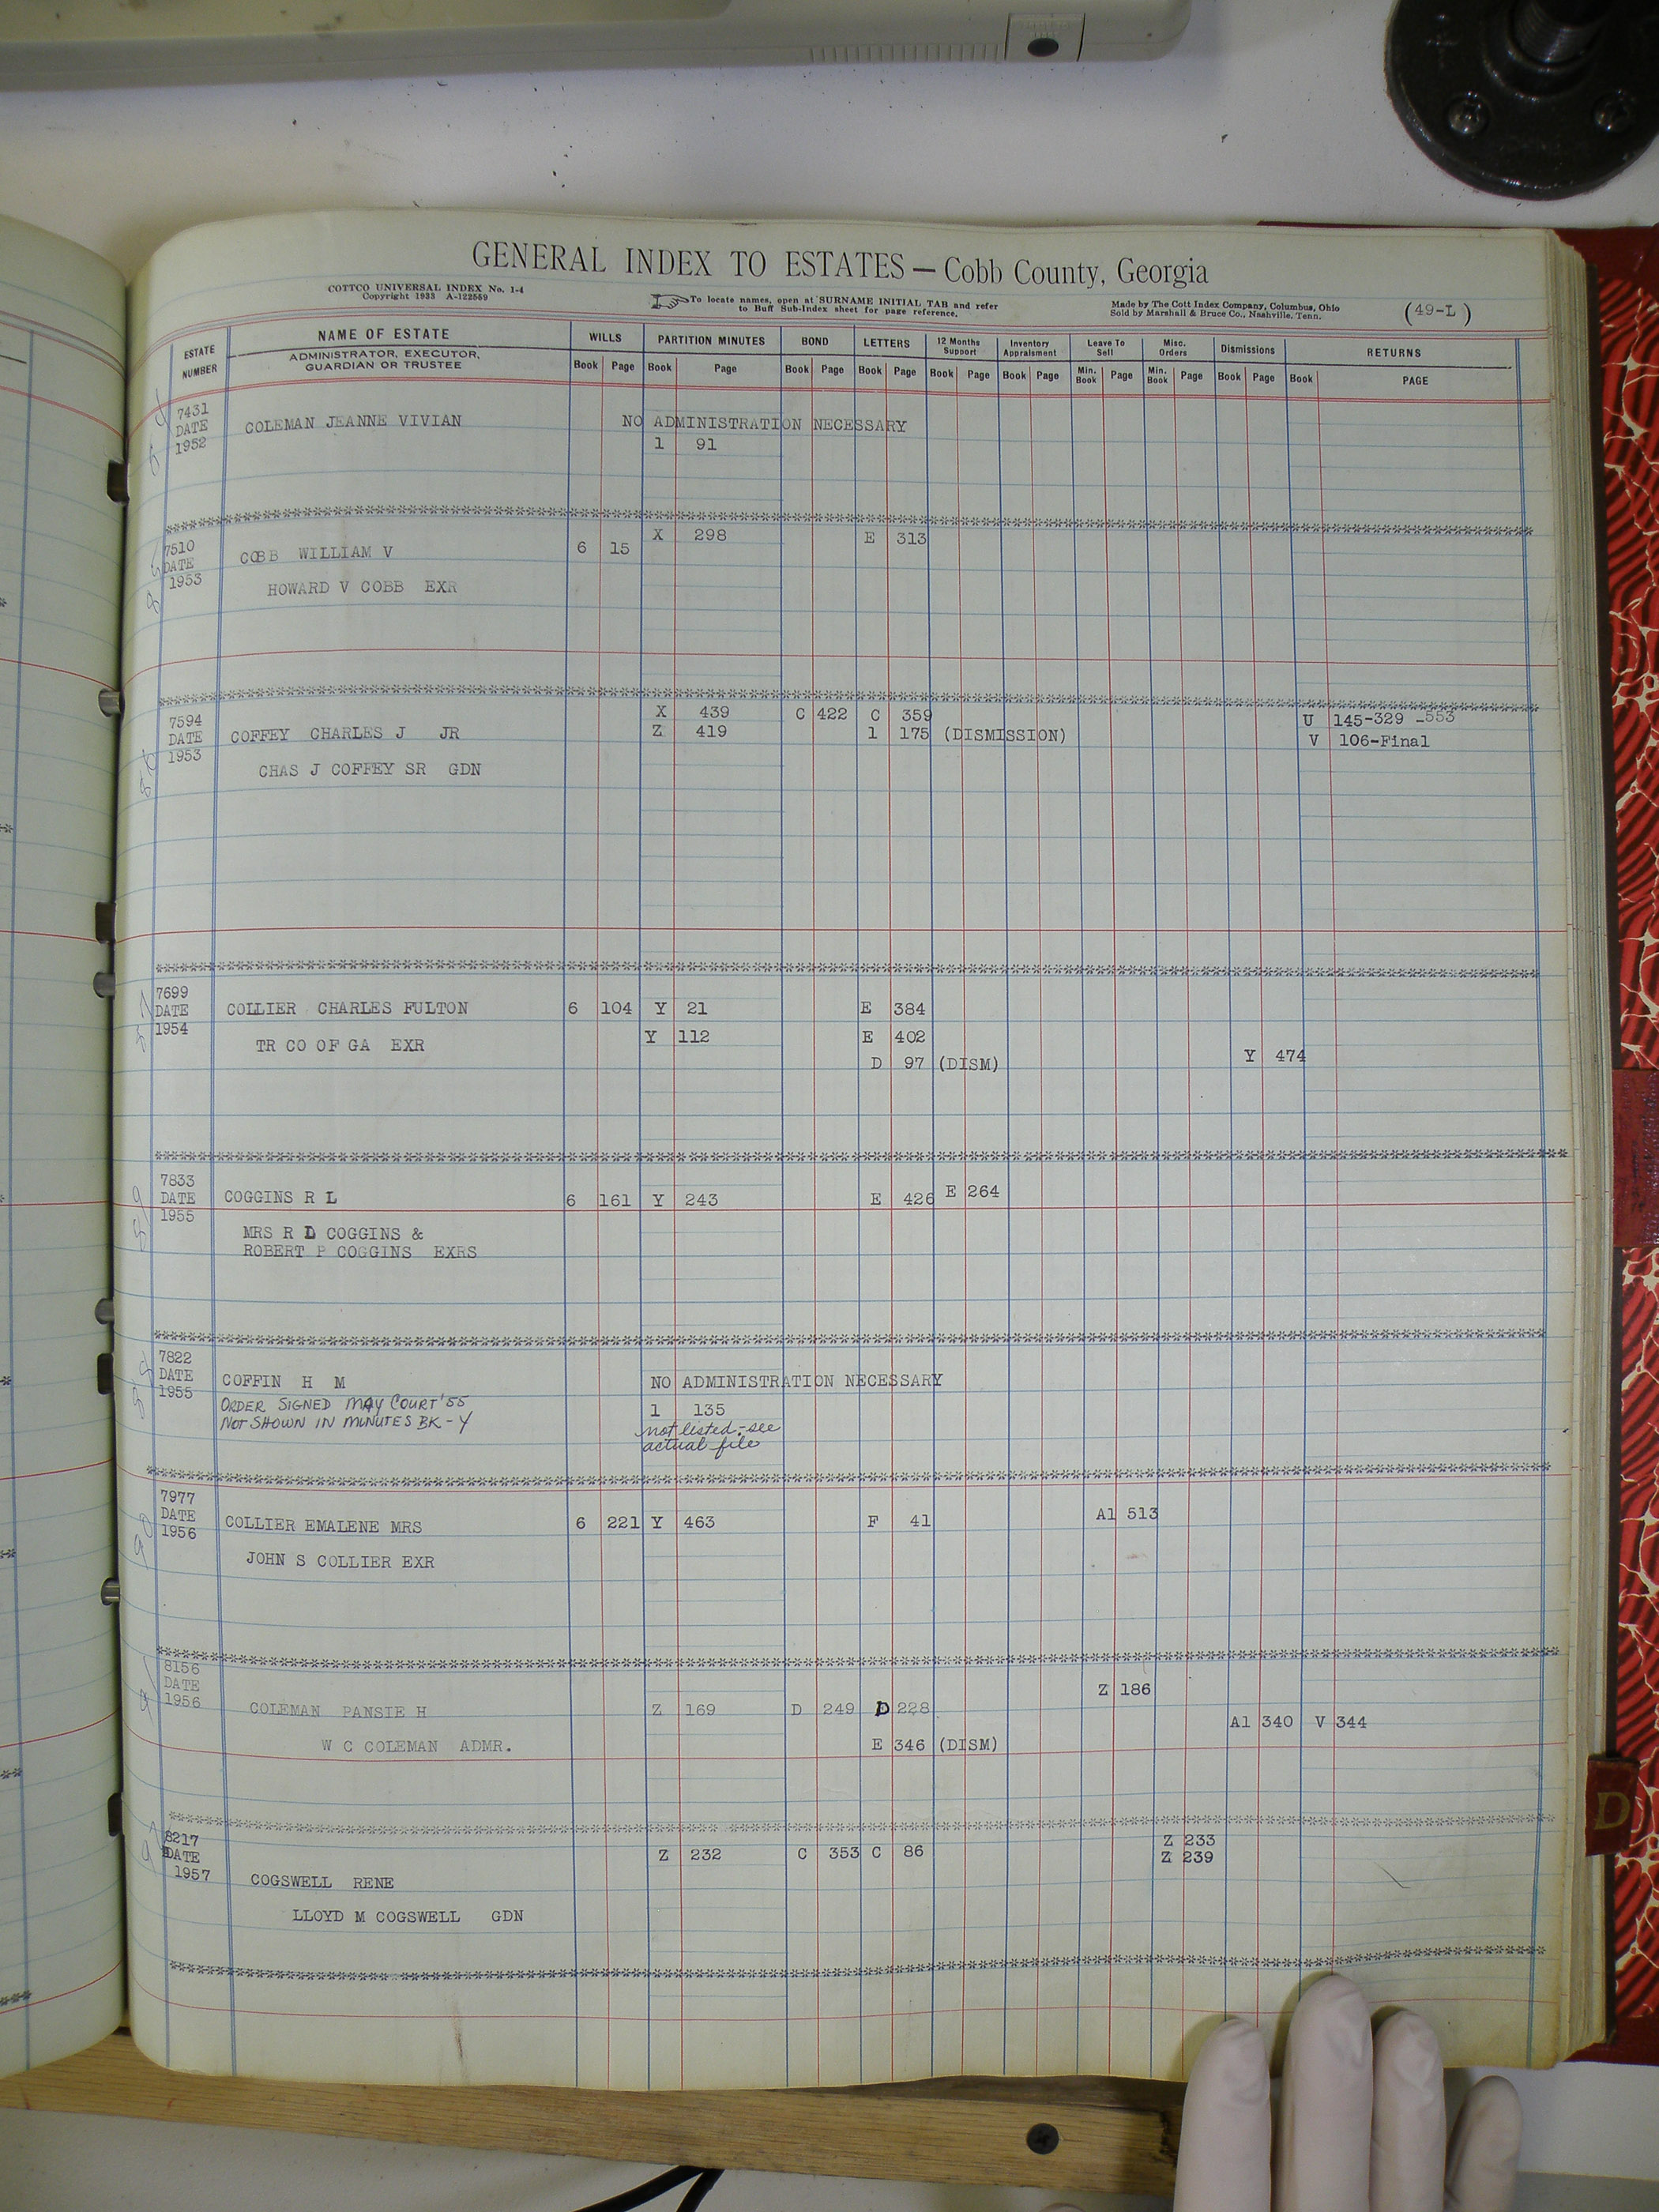 GENERAL INDEX TO ESTATES — Cobb County, Georgia
COTTCO UNIVERSAL INDEX No. 1-4
Copyright 1933 A-122559
To locate names, open at SURNAME INITIAL TAB and refer
to Buff Sub-Index sheet for page reference.
Made by The Cott Index Company, Columbus, Ohio
Sold by Marshall & Bruce Co., Nashville, Tenn.
(49-L)
ESTATE NUMBER
NAME OF ESTATE
ADMINISTRATOR, EXECUTOR, GUARDIAN OR TRUSTEE
WILLS PARTITION MINUTES BOND LETTERS 12 Months Support Inventory Appraisment Leave To Sell Misc. Orders Dismissions RETURNS
Book Page Book Page Book Page Book Page Book Page Book Page Min. Book Page Min. Book Page Book Page Book PAGE
7431
DATE COLEMAN JEANNE VIVIAN NO ADMINISTRATION NECESSARY
1952 1 91
7510 X 298 E 313
DATE COBB WILLIAM V 6 15
1953 HOWARD V COBB EXR
7594 X 439 C 422 C 359 U 145-329 -553
DATE COFFEY CHARLES J JR Z 419 1 175 (DISMISSION) V 106-Final
1953
CHAS J COFFEY SR GDN
7699
DATE COLLIER CHARLES FULTON 6 104 Y 21 E 384
1954 Y 112 E 402
TR CO OF GA EXR D 97 (DISM) Y 474
7833
DATE COGGINS R L 6 161 Y 243 E 426 E 264
1955
MRS R L COGGINS &
ROBERT P COGGINS EXRS
7822
DATE COFFIN H M NO ADMINISTRATION NECESSARY
1955 ORDER SIGNED MAY COURT '55 1 135
NOT SHOWN IN MINUTES BK-Y not listed - see
actual file
7977
DATE A1 513
1956 COLLIER EMALENE MRS 6 221 Y 463 F 41
JOHN S COLLIER EXR
8156
DATE Z 186
1956 COLEMAN PANSIE H Z 169 D 249 D 228
A1 340 V 344
W C COLEMAN ADMR. E 346 (DISM)
8217 Z 233
DATE Z 232 C 353 C 86 Z 239
1957 COGSWELL RENE
LLOYD M COGSWELL GDN
D